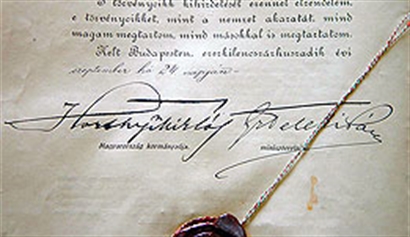 E törvénycikk kihirdetését ezennel elrendelem,
e törvénycikket, mint a nemzet akaratát, mind
magam megtartom, mind másokkal is megtartatom.
Kelt Budapesten, ezerkilencszázhuszadik évi
szeptember hó 24 napján
Horthy Miklós Teleki Pál
Magyarország kormányzója. miniszterelnök.